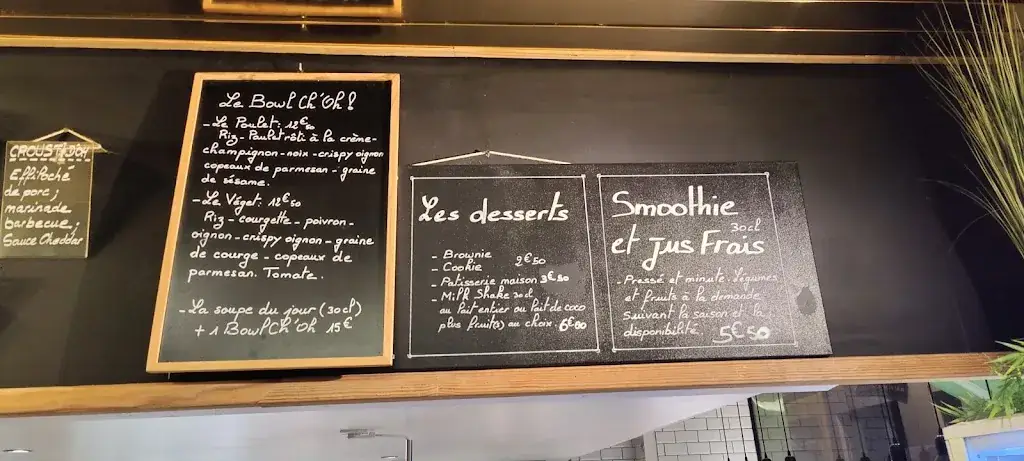 CROUSTID'OH
Effiloché
de porc ;
marinade
barbecue ;
Sauce Cheddar
Le Bowl Ch'Oh !
- Le Poulet : 12€50
Riz - Poulet rôti à la crème -
champignon - noix - crispy oignon
copeaux de parmesan - graine
de sésame.
- Le Véget : 12€50
Riz - courgette - poivron -
oignon - crispy oignon - graine
de courge - copeaux de
parmesan. Tomate.
- La soupe du jour (30cl)
+ 1 Bowl Ch'Oh 15€
Les desserts
- Brownie
- Cookie 2€50
- Patisserie maison 3€50
- Milk Shake 30cl
au lait entier ou lait de coco
plus fruit(s) au choix 6€80
Smoothie
30cl
et Jus Frais
- Pressé et minute. Légumes
et fruits à la demande
Suivant la saison et la
disponibilité 5€50